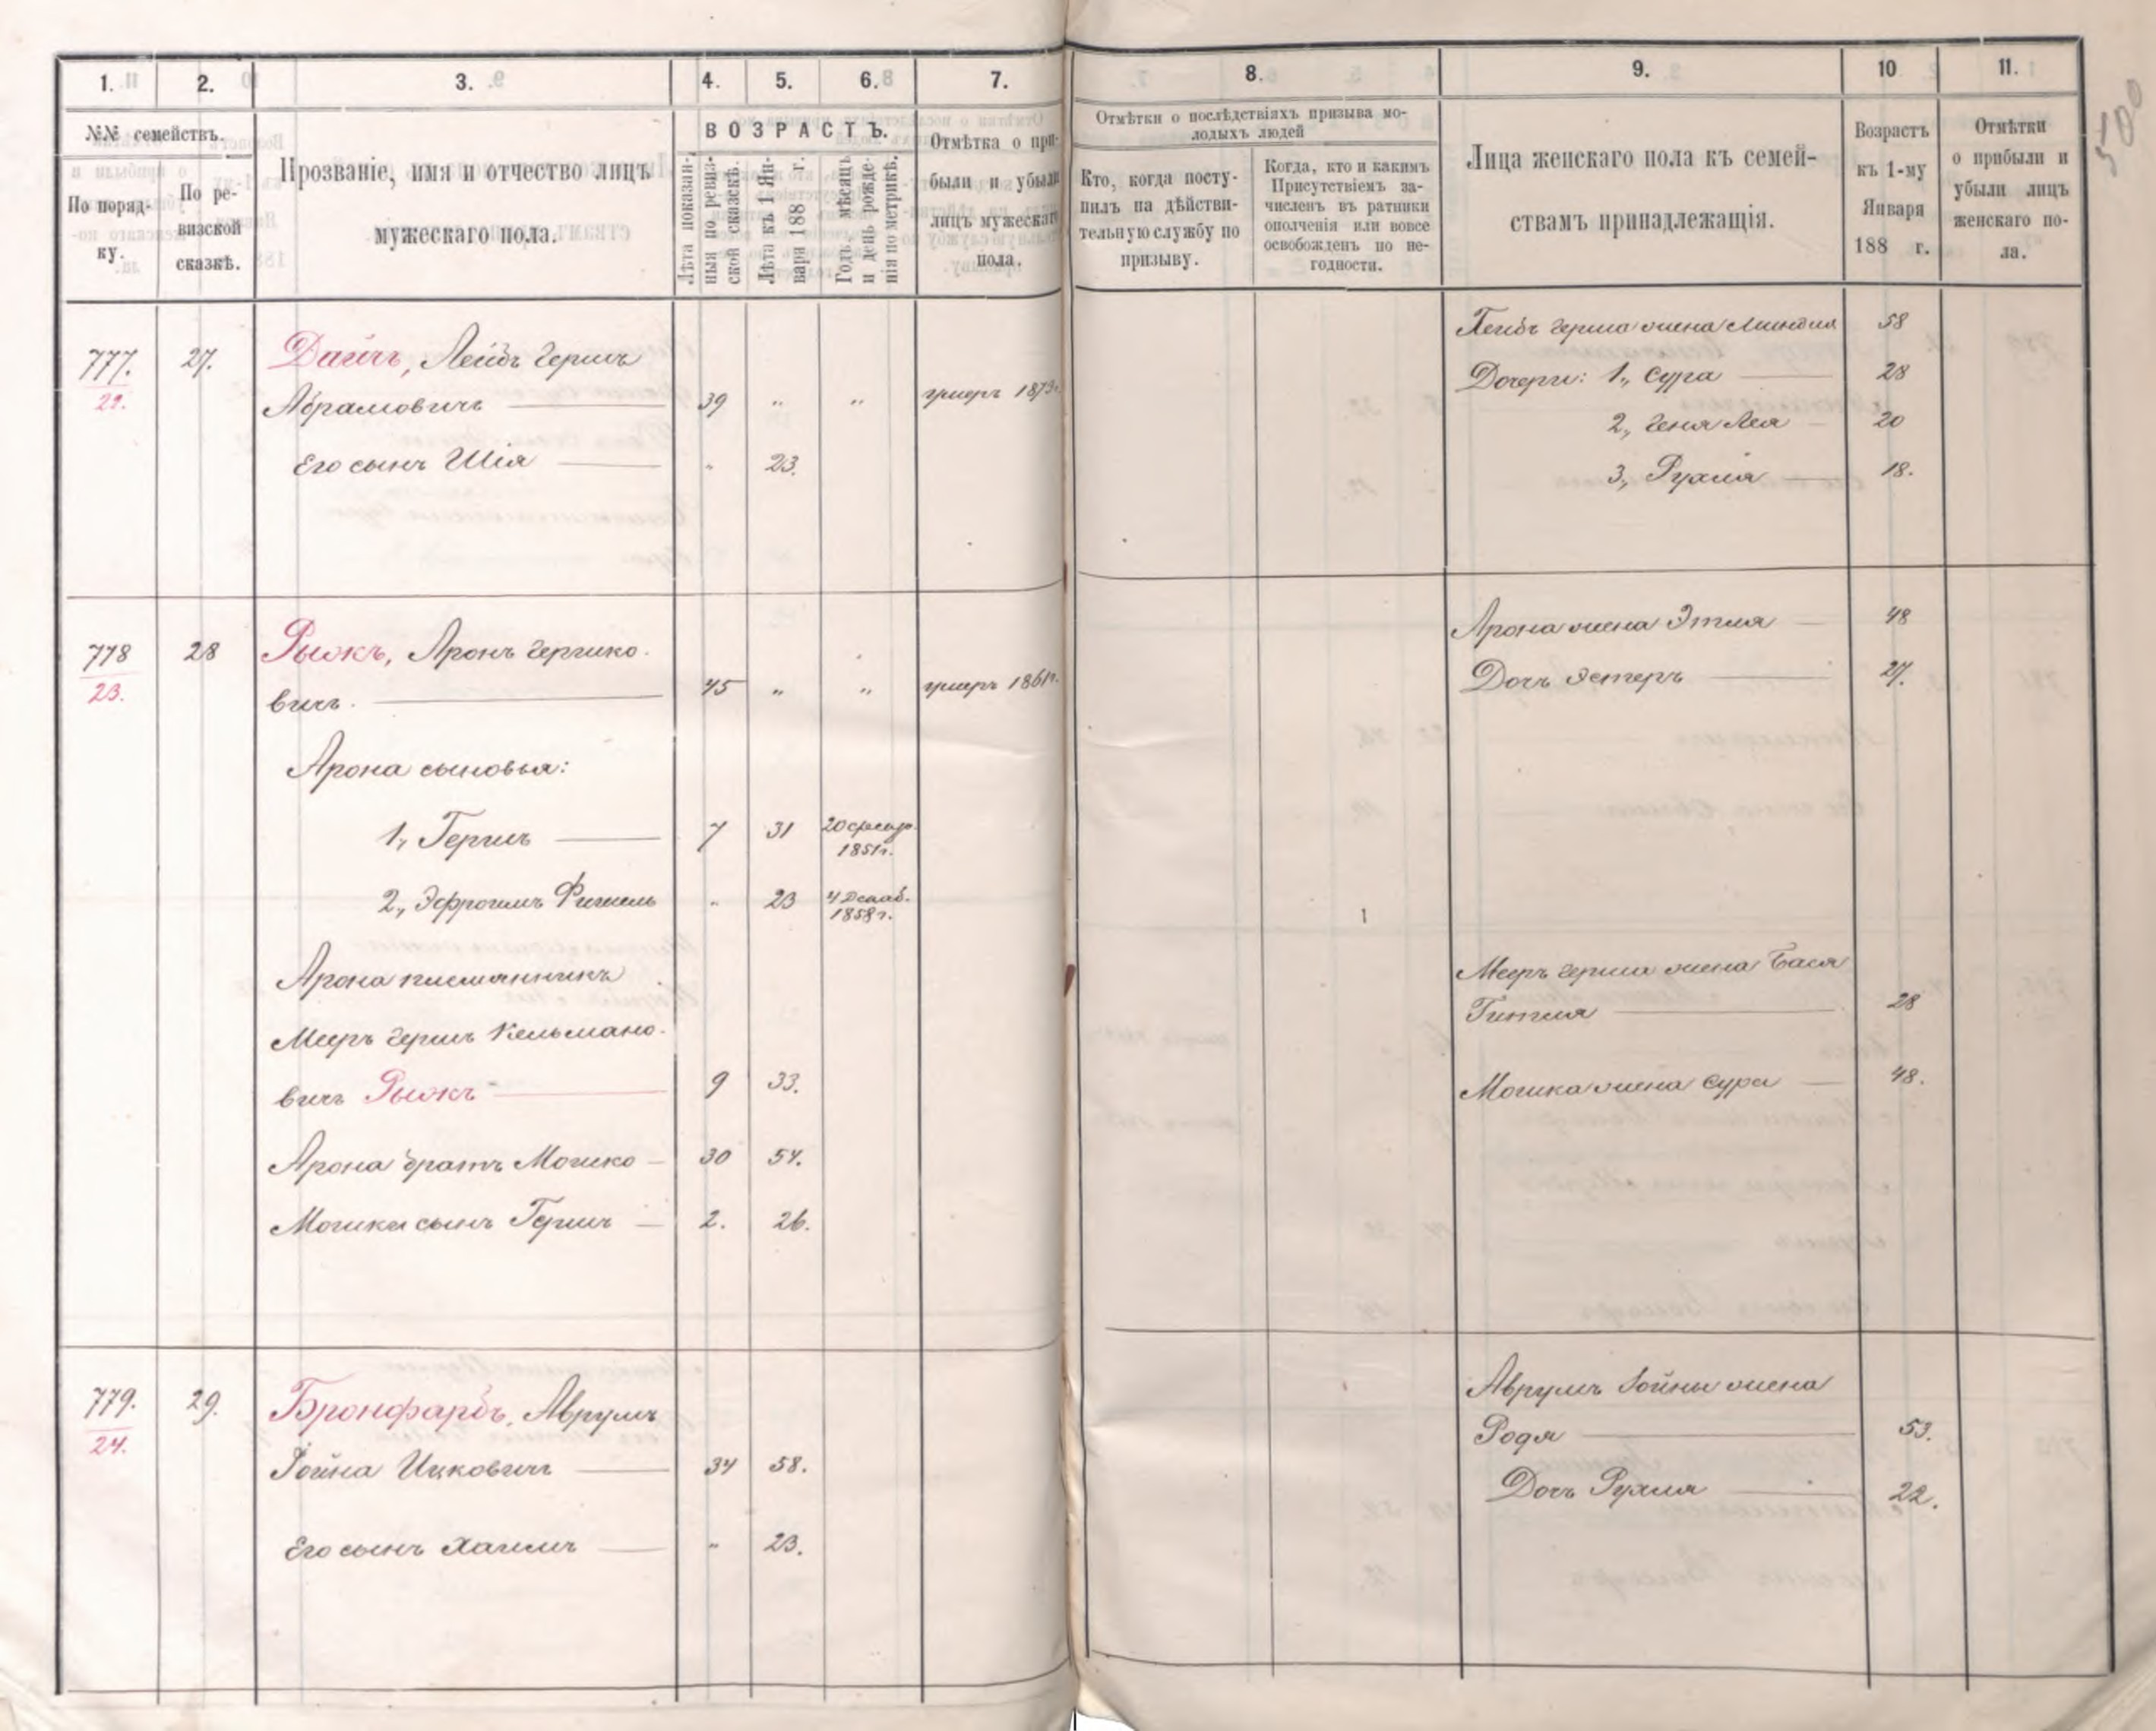 1. 2. 3. 4. 5. 6. 7.
№№ семействъ.
По поряд-
ку.
По ре-
визской
сказкѣ.
Прозваніе, имя и отчество лицъ
мужескаго пола.
ВОЗРАСТЪ.
Лѣта показан-
ныя по ревиз-
ской сказкѣ.
Лѣта къ 1 Ян-
варя 188 г.
Годъ, мѣсяцъ
и день рожде-
нія по метрикѣ.
Отмѣтка о при-
были и убыли
лицъ мужескаго
пола.
777. 27. Дайчъ, Лейбъ Гершъ
22. Абрамовичъ 39 „ „ умеръ 1873г.
Его сынъ Шія „ 23.
778 28 Рыжкъ, Аронъ Гершко-
23. вичъ. 45 „ „ умеръ 1861г.
Арона сыновья:
1, Гершъ 7 31 20 февр. 1851г.
2, Эфроимъ Фишель „ 23 4 Декаб. 1858г.
Арона племянникъ
Мееръ Гершъ Кельмано-
вичъ Рыжкъ 9 33.
Арона братъ Мошко 30 54.
Мошки сынъ Гершъ 2. 26.
779. 29. Бронфарбъ, Аврумъ
24. Іойна Ицковичъ 34 58.
Его сынъ Хаимъ „ 23.
8. 9. 10 11.
Отмѣтки о послѣдствіяхъ призыва мо-
лодыхъ людей
Кто, когда посту-
пилъ на дѣйстви-
тельную службу по
призыву.
Когда, кто и какимъ
Присутствіемъ за-
численъ въ ратники
ополченія или вовсе
освобожденъ по не-
годности.
Лица женскаго пола къ семей-
ствамъ принадлежащія.
Возрастъ
къ 1-му
Января
188 г.
Отмѣтки
о прибыли и
убыли лицъ
женскаго по-
ла.
Лейбъ Герша жена Миндля 58
Дочери: 1, Сура 28
2, Геня Лея 20
3, Рухля 18.
Арона жена Этля 48
Дочь Эстеръ 27.
Мееръ Герша жена Бася
Гитля 28
Мошка жена Сура 48.
Аврумъ Іойны жена
Родя 53.
Дочь Рухля 22.